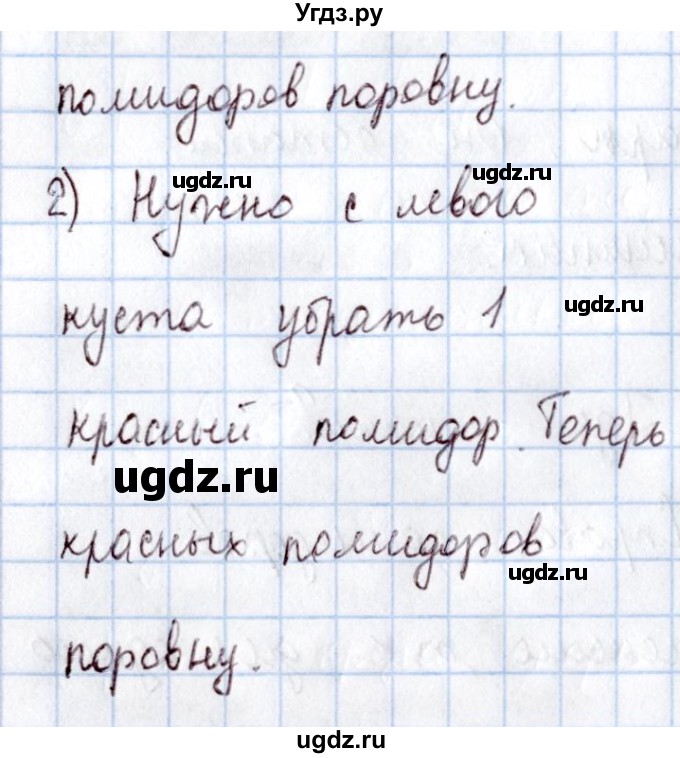 Угдз.ру
помидоров поровну.
ugdz.ru ugdz.ru
2) Нужно с левого
куста убрать 1
ugdz.ru
красный помидор. Теперь
ugdz.ru
красных помидоров
ugdz.ru
поровну.
ugdz.ru